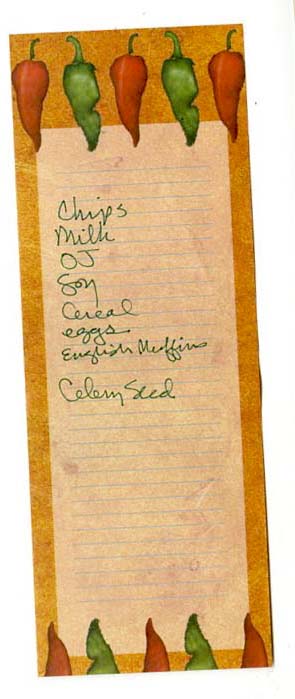 Chips
Milk
OJ
Soy
Cereal
eggs
English Muffins
Celery Seed